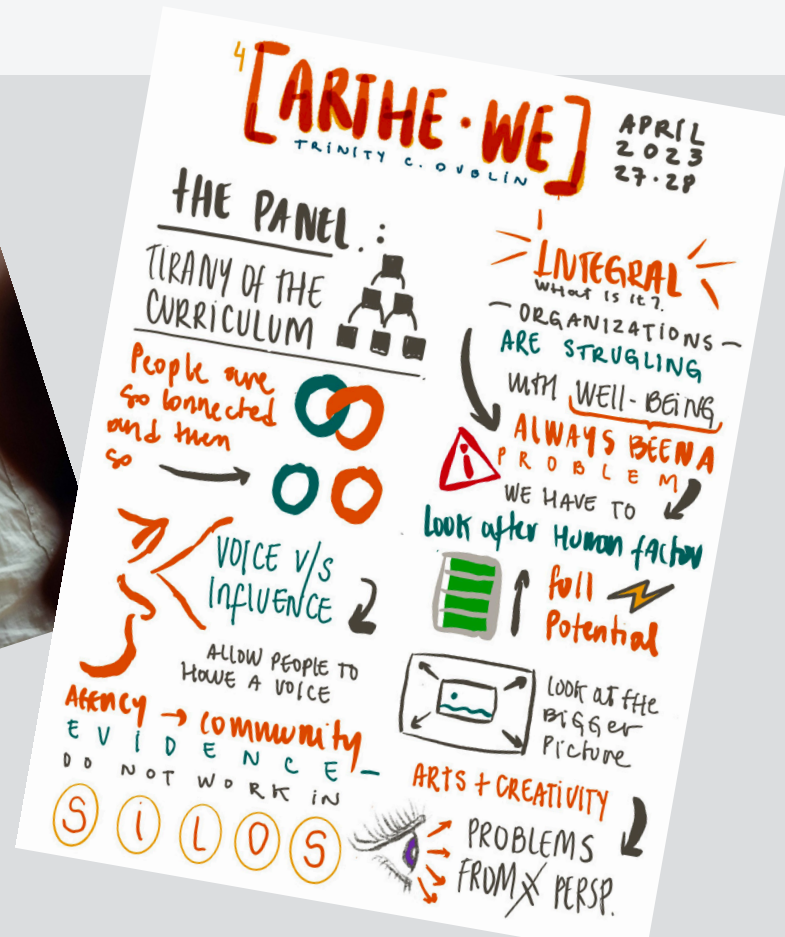 4
[ARTHE·WE]
TRINITY C. DUBLIN
APRIL
2023
27·28
THE PANEL.:
TIRANY OF THE
CURRICULUM
People are
so connected
and then
so
VOICE V/S
INFLUENCE
ALLOW PEOPLE TO
HAVE A VOICE
AGENCY → community
EVIDENCE –
DO NOT WORK IN
SILOS
INTEGRAL
WHAT IS IT?
– ORGANIZATIONS –
ARE STRUGLING
WITH WELL-BEING
ALWAYS BEEN A
PROBLEM
WE HAVE TO
Look after Human factor
full
Potential
LOOK AT THE
BIGGER
Picture
ARTS + CREATIVITY
PROBLEMS
FROM ≠ PERSP.